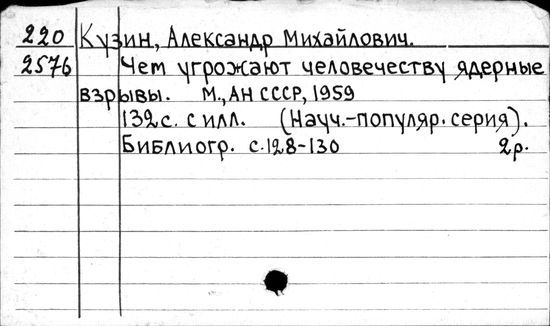 220 Кузин, Александр Михайлович.
2576 Чем угрожают человечеству ядерные
взрывы. М., АН СССР, 1959
132с. с илл. (Науч.-популяр. серия).
Библиогр. с.128-130 2р.